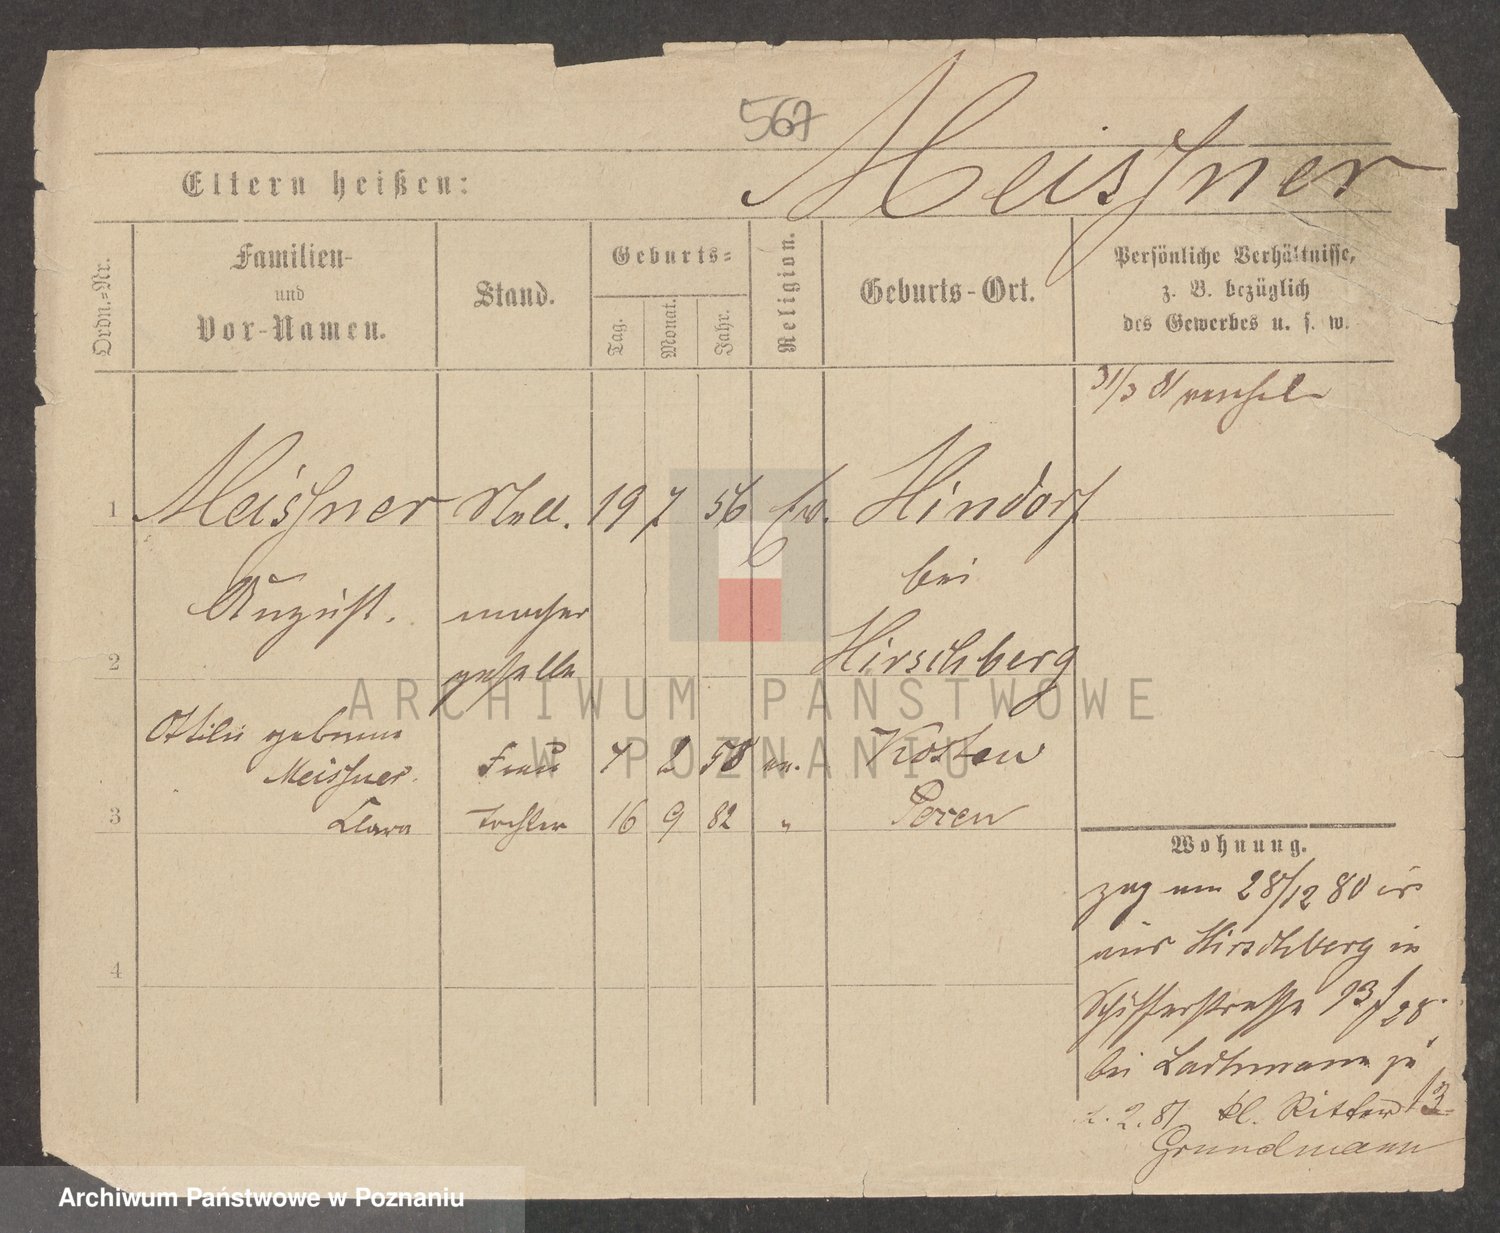 567
Meissner
Eltern heißen:
Ordn.-Nr.
Familien-
und
Vor-Namen.
Stand.
Geburts-
Tag.
Monat.
Jahr.
Religion.
Geburts-Ort.
Persönliche Verhältnisse,
z. B. bezüglich
des Gewerbes u. s. w.
31/3 81
1 Meissner Stell. 19 7 56 Ev. Hindorf
bei
August. macher
2 Hirschberg
geselle
Ottilie geborene
Meissner. Frau 7 2 58 ev. Kosten
3 Clara Tochter 16 9 82 " Posen
Wohnung.
zog am 28/12 80
aus Hirschberg in
4
Schifferstrasse 13
bei Lachmann zu
2. 81 kl. Ritter 13
Grundmann
ARCHIWUM PAŃSTWOWE
W POZNANIU
Archiwum Państwowe w Poznaniu